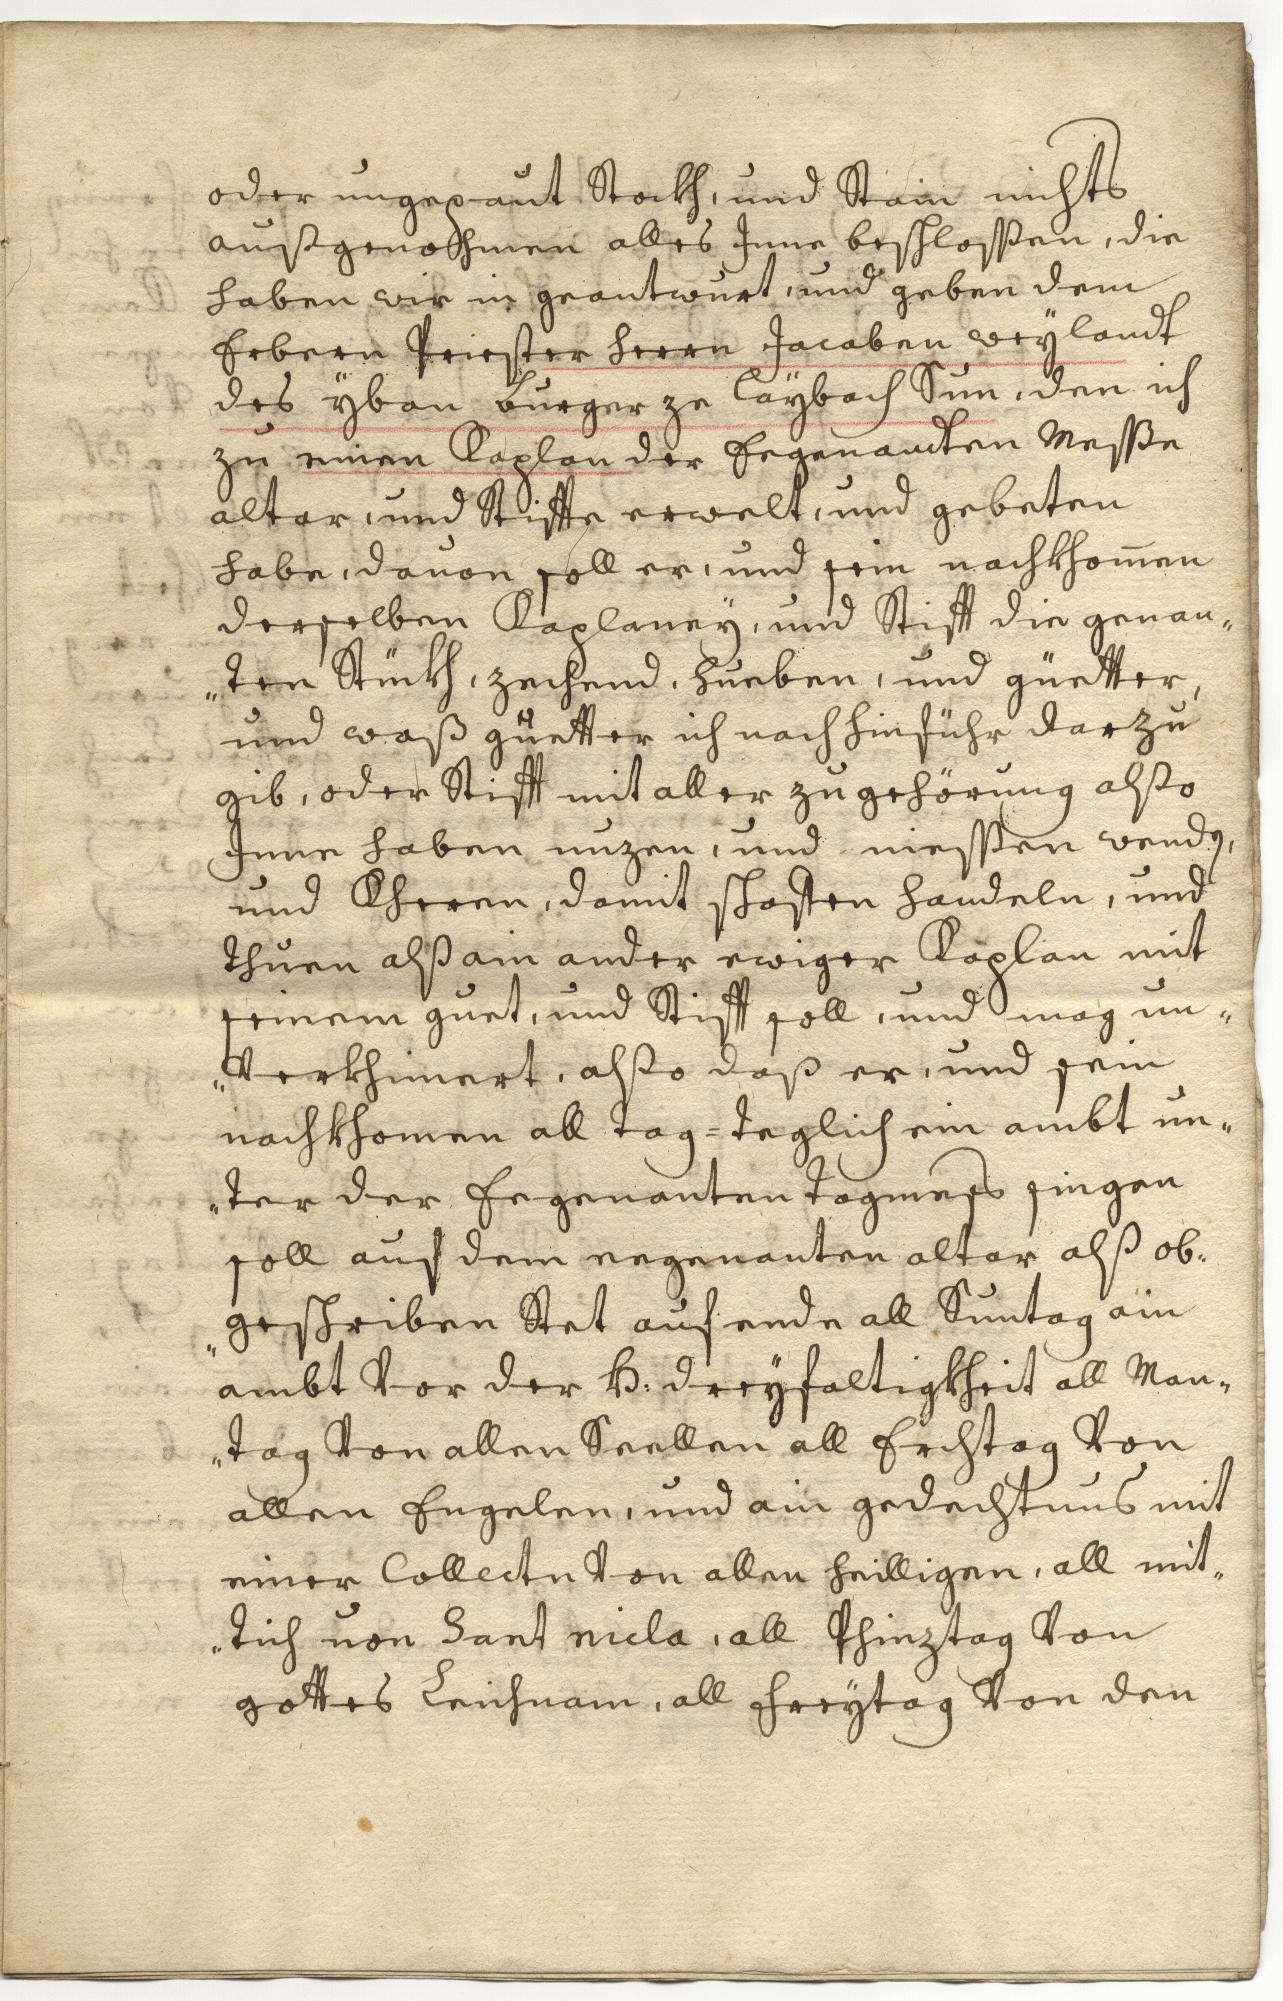 oder ungepaut Stockh, und Stain nichts
außgenohmen alles Inne beschloßen, die
haben wir in geantwurt, und geben dem
Erbern Priester herrn Jacoben weylandt
des ÿban Burger ze Laÿbach Sun, den ich
zu einen Kaplan der Eegenandten Messe
altar, und Stiffte erwelt, und gebeten
habe, dauon soll er, und sein nachkhom̄en
derselben Kaplaneÿ, und Stifft die genan„
„ten Stückh, zechend, hueben, und güetter,
und waß güetter ich noch hinführ darzu
gib, oder Stifft mit aller zugehörung alßo
Inne haben nuzen, und niessen wendten,
und Kheren, damit schaffen handeln, und
thuen alß ain ander ewiger Kaplan mit
seinem guet, und Stifft soll, und mag un„
„Verkhimert, alßo daß er, und sein
nachkhomen all tag=teglich ein ambt un„
„ter der Eegenanten tagmess singen
soll auf dem eegenanten altar alß ob„
„geschriben Stet auf ende all Suntag ain
ambt Vor der H: dreÿfaltigkheit all Man„
„tag Von allen Seellen all Erchtag Von
allen Engelen, und ain gedechtnus mit
einer Collectn Von allen heilligen, all mit„
„tich uon Sant nicla, all Phinztag Von
gottes Leichnam, all Freÿtag Von den